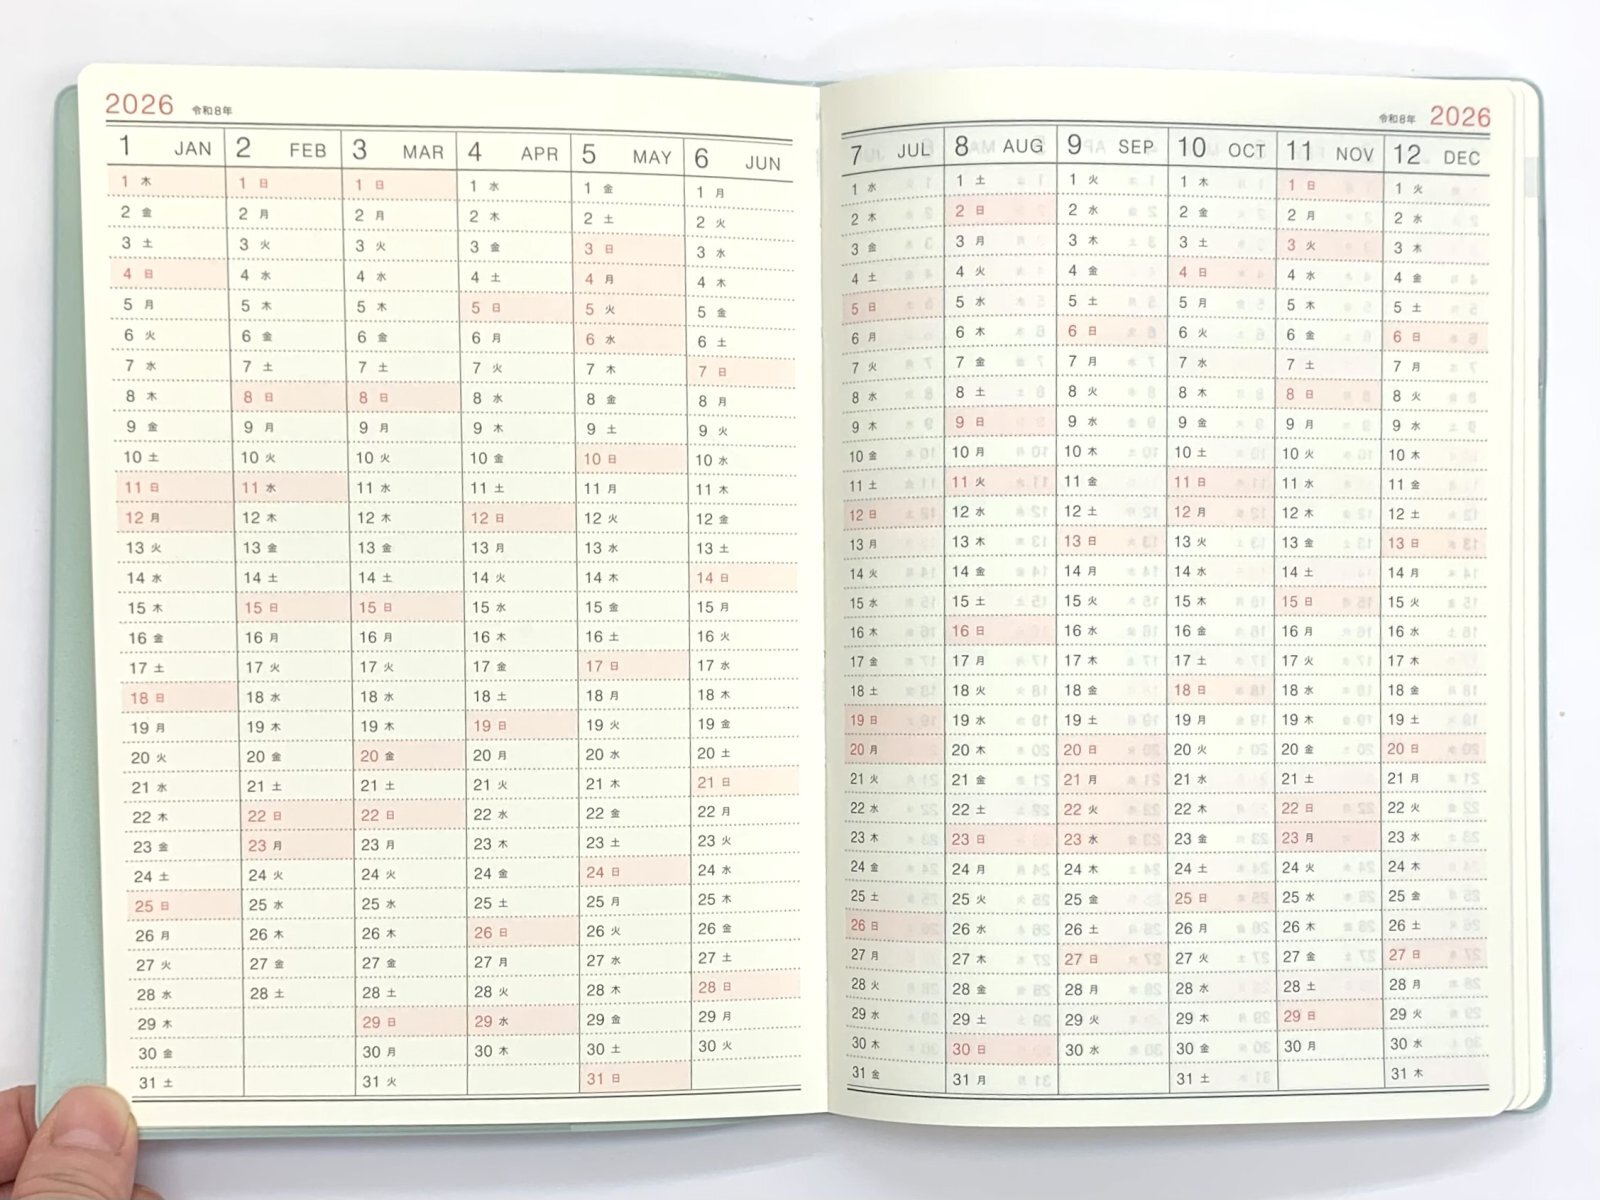 2026 令和8年
1 JAN 2 FEB 3 MAR 4 APR 5 MAY 6 JUN
1 木 1 日 1 日 1 水 1 金 1 月
2 金 2 月 2 月 2 木 2 土 2 火
3 土 3 火 3 火 3 金 3 日 3 水
4 日 4 水 4 水 4 土 4 月 4 木
5 月 5 木 5 木 5 日 5 火 5 金
6 火 6 金 6 金 6 月 6 水 6 土
7 水 7 土 7 土 7 火 7 木 7 日
8 木 8 日 8 日 8 水 8 金 8 月
9 金 9 月 9 月 9 木 9 土 9 火
10 土 10 火 10 火 10 金 10 日 10 水
11 日 11 水 11 水 11 土 11 月 11 木
12 月 12 木 12 木 12 日 12 火 12 金
13 火 13 金 13 金 13 月 13 水 13 土
14 水 14 土 14 土 14 火 14 木 14 日
15 木 15 日 15 日 15 水 15 金 15 月
16 金 16 月 16 月 16 木 16 土 16 火
17 土 17 火 17 火 17 金 17 日 17 水
18 日 18 水 18 水 18 土 18 月 18 木
19 月 19 木 19 木 19 日 19 火 19 金
20 火 20 金 20 金 20 月 20 水 20 土
21 水 21 土 21 土 21 火 21 木 21 日
22 木 22 日 22 日 22 水 22 金 22 月
23 金 23 月 23 月 23 木 23 土 23 火
24 土 24 火 24 火 24 金 24 日 24 水
25 日 25 水 25 水 25 土 25 月 25 木
26 月 26 木 26 木 26 日 26 火 26 金
27 火 27 金 27 金 27 月 27 水 27 土
28 水 28 土 28 土 28 火 28 木 28 日
29 木 29 日 29 水 29 金 29 月
30 金 30 月 30 木 30 土 30 火
31 土 31 火 31 日
令和8年 2026
7 JUL 8 AUG 9 SEP 10 OCT 11 NOV 12 DEC
1 水 1 土 1 火 1 木 1 日 1 火
2 木 2 日 2 水 2 金 2 月 2 水
3 金 3 月 3 木 3 土 3 火 3 木
4 土 4 火 4 金 4 日 4 水 4 金
5 日 5 水 5 土 5 月 5 木 5 土
6 月 6 木 6 日 6 火 6 金 6 日
7 火 7 金 7 月 7 水 7 土 7 月
8 水 8 土 8 火 8 木 8 日 8 火
9 木 9 日 9 水 9 金 9 月 9 水
10 金 10 月 10 木 10 土 10 火 10 木
11 土 11 火 11 金 11 日 11 水 11 金
12 日 12 水 12 土 12 月 12 木 12 土
13 月 13 木 13 日 13 火 13 金 13 日
14 火 14 金 14 月 14 水 14 土 14 月
15 水 15 土 15 火 15 木 15 日 15 火
16 木 16 日 16 水 16 金 16 月 16 水
17 金 17 月 17 木 17 土 17 火 17 木
18 土 18 火 18 金 18 日 18 水 18 金
19 日 19 水 19 土 19 月 19 木 19 土
20 月 20 木 20 日 20 火 20 金 20 日
21 火 21 金 21 月 21 水 21 土 21 月
22 水 22 土 22 火 22 木 22 日 22 火
23 木 23 日 23 水 23 金 23 月 23 水
24 金 24 月 24 木 24 土 24 火 24 木
25 土 25 火 25 金 25 日 25 水 25 金
26 日 26 水 26 土 26 月 26 木 26 土
27 月 27 木 27 日 27 火 27 金 27 日
28 火 28 金 28 月 28 水 28 土 28 月
29 水 29 土 29 火 29 木 29 日 29 火
30 木 30 日 30 水 30 金 30 月 30 水
31 金 31 月 31 土 31 木